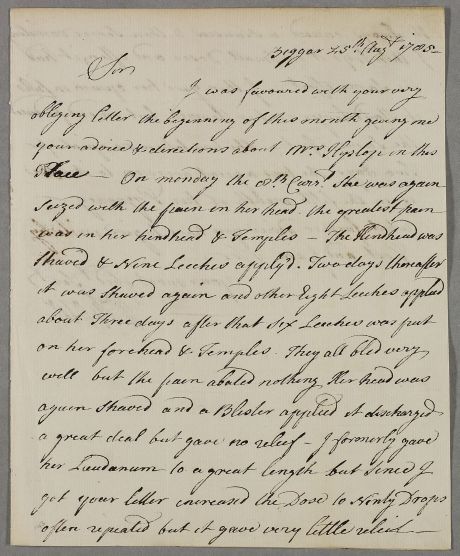 Beggar 25th Augt 1785—
Sir
I was favoured with your very
obleging letter the beginning of this month geving me
your advice & directions about Mrs Hyslope in this
Place — On monday the 8th Currt. She was again
seized with the pain in her head. the greatest pain
was in her hindhead & Temples — The Hindhead was
Shaved & Nine Leeches apply'd. Two days thereafter
it was Shaved again and other Eight Leeches applied
about Three days after that six Leeches was put
on her forehead & Temples. They all bled very
well but the pain abated nothing Her head was
again Shaved and a Blister applied it discharged
a great deal but gave no releef — I formerly gave
her Laudanum to a great length but since I
got your letter increased the Dose to Ninty Drops
often repeated but it gave very little releef —